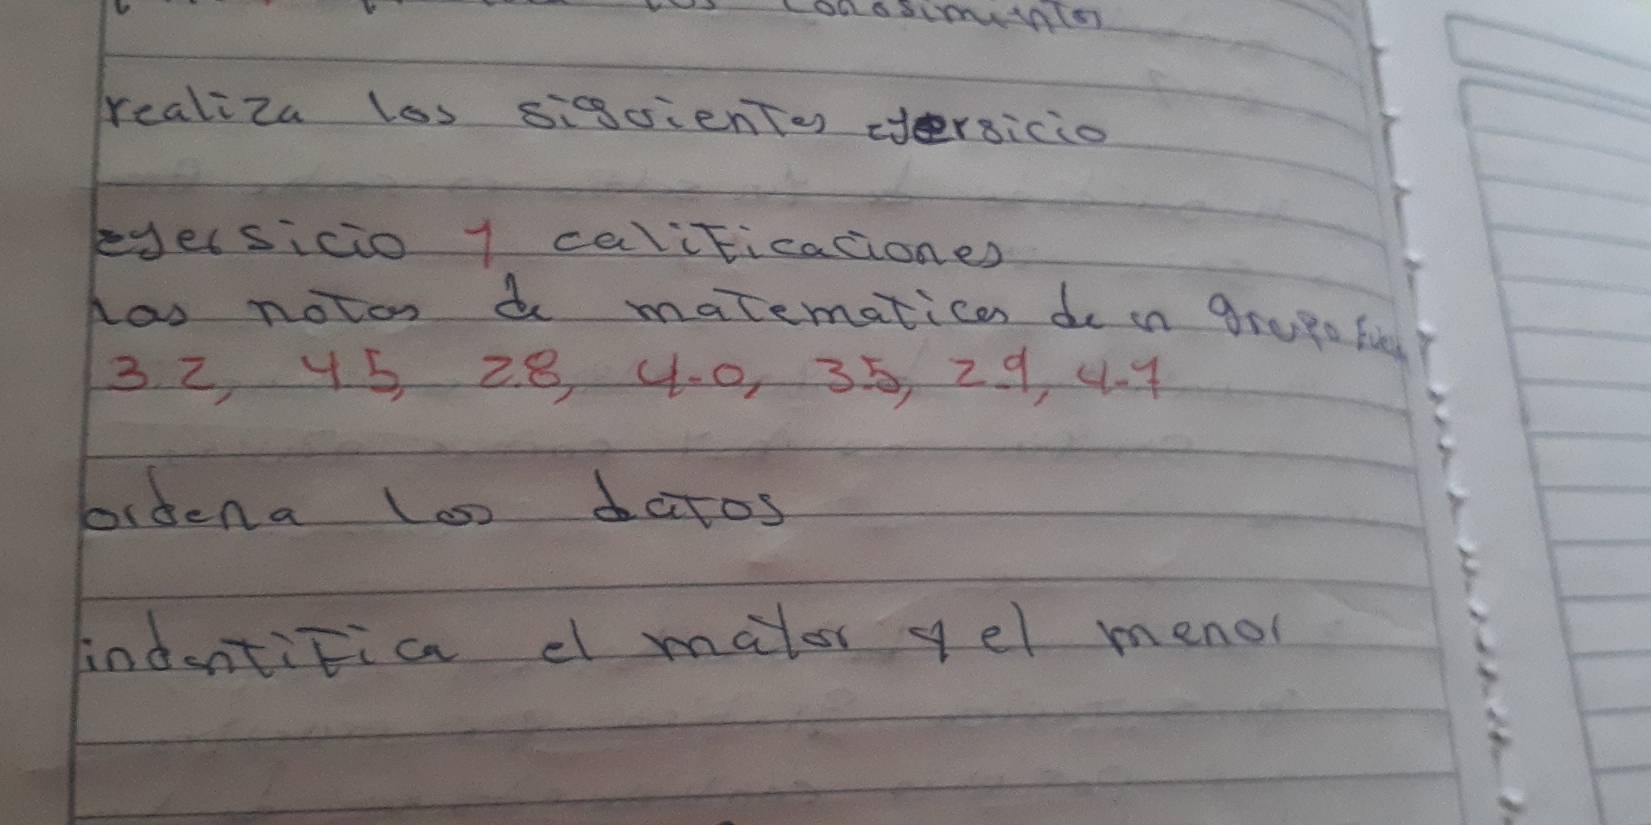 los conosimientos
realiza los siguientes ejersicio
ejersicio 1 calificaciones
las notas de matematicas de un grupo fuer
3.2, 4.5, 2.8, 4.0, 3.5, 2.9, 4.1
ordena los datos
indentifica el mayor y el menor